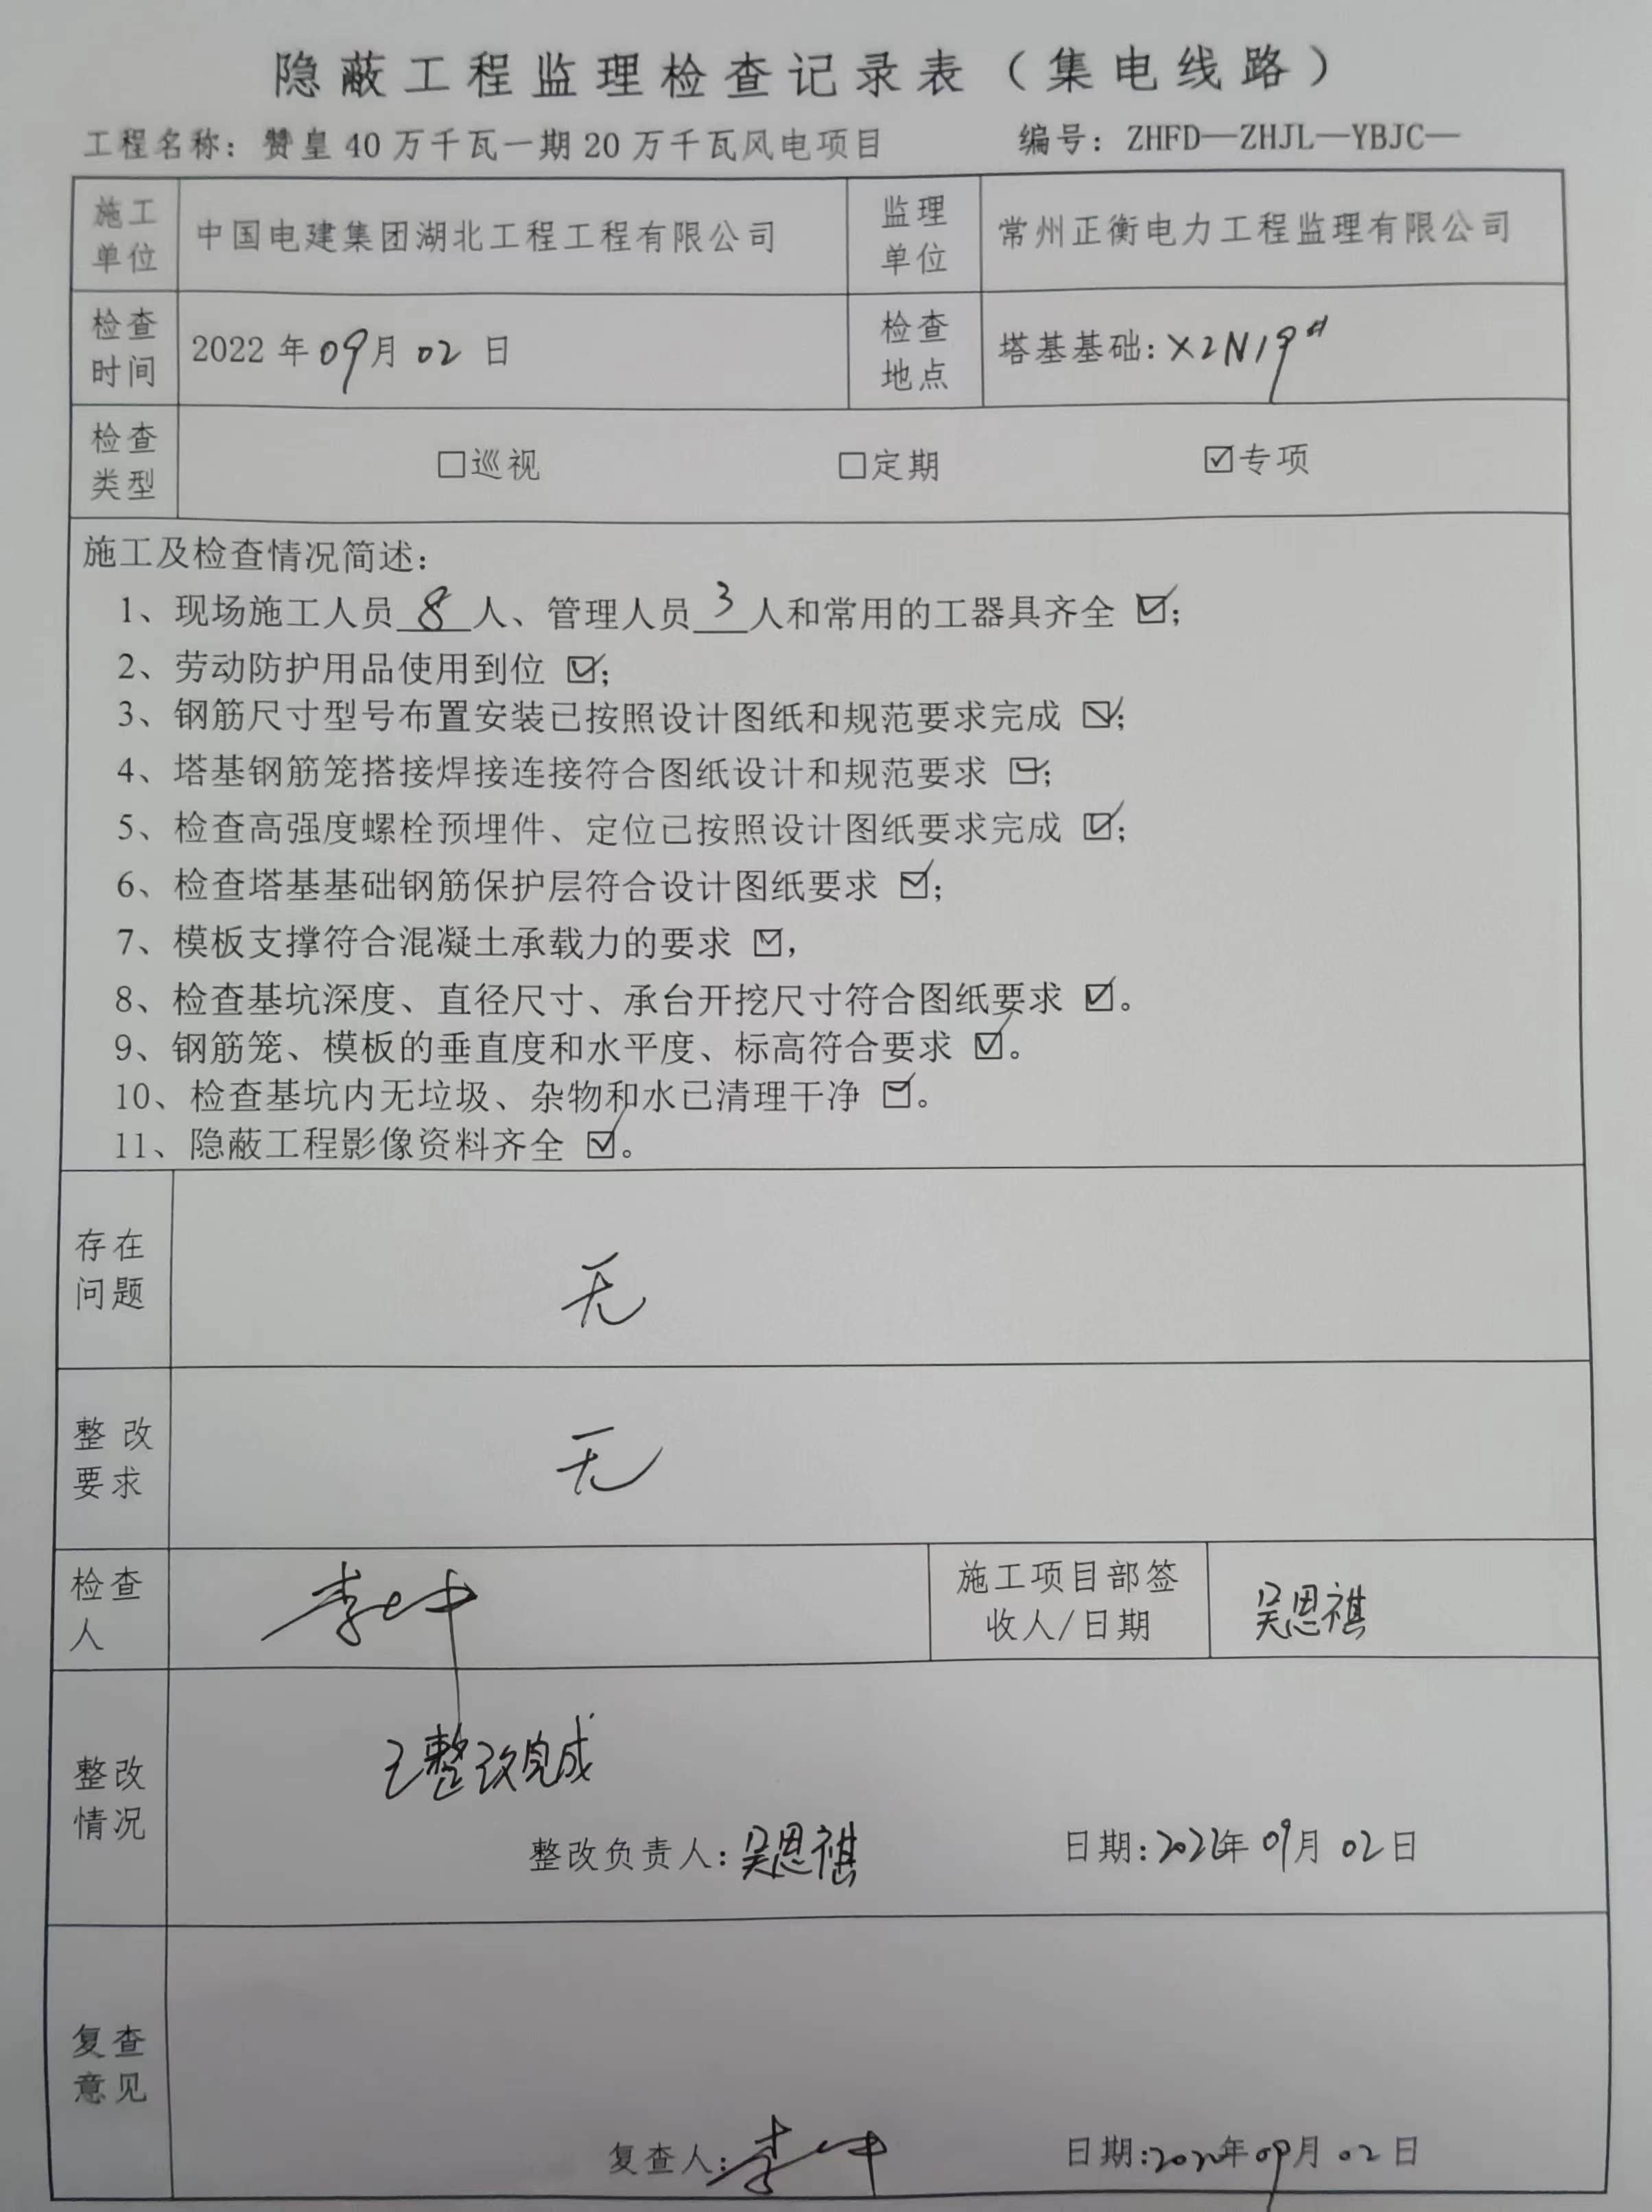 隐蔽工程监理检查记录表（集电线路）
工程名称：赞皇40万千瓦一期20万千瓦风电项目 编号：ZHFD—ZHJL—YBJC—
施工单位 中国电建集团湖北工程工程有限公司 监理单位 常州正衡电力工程监理有限公司
检查时间 2022年09月02日 检查地点 塔基基础：X2N19#
检查类型 □巡视 □定期 ☑专项
施工及检查情况简述：
1、现场施工人员8人、管理人员3人和常用的工器具齐全☑；
2、劳动防护用品使用到位☑；
3、钢筋尺寸型号布置安装已按照设计图纸和规范要求完成☑；
4、塔基钢筋笼搭接焊接连接符合图纸设计和规范要求☑；
5、检查高强度螺栓预埋件、定位已按照设计图纸要求完成☑；
6、检查塔基基础钢筋保护层符合设计图纸要求☑；
7、模板支撑符合混凝土承载力的要求☑，
8、检查基坑深度、直径尺寸、承台开挖尺寸符合图纸要求☑。
9、钢筋笼、模板的垂直度和水平度、标高符合要求☑。
10、检查基坑内无垃圾、杂物和水已清理干净☑。
11、隐蔽工程影像资料齐全☑。
存在问题 无
整改要求 无
检查人 施工项目部签收人/日期 吴恩祺
整改情况 已整改完成
整改负责人：吴恩祺 日期：2022年09月02日
复查意见
复查人： 日期：2022年09月02日